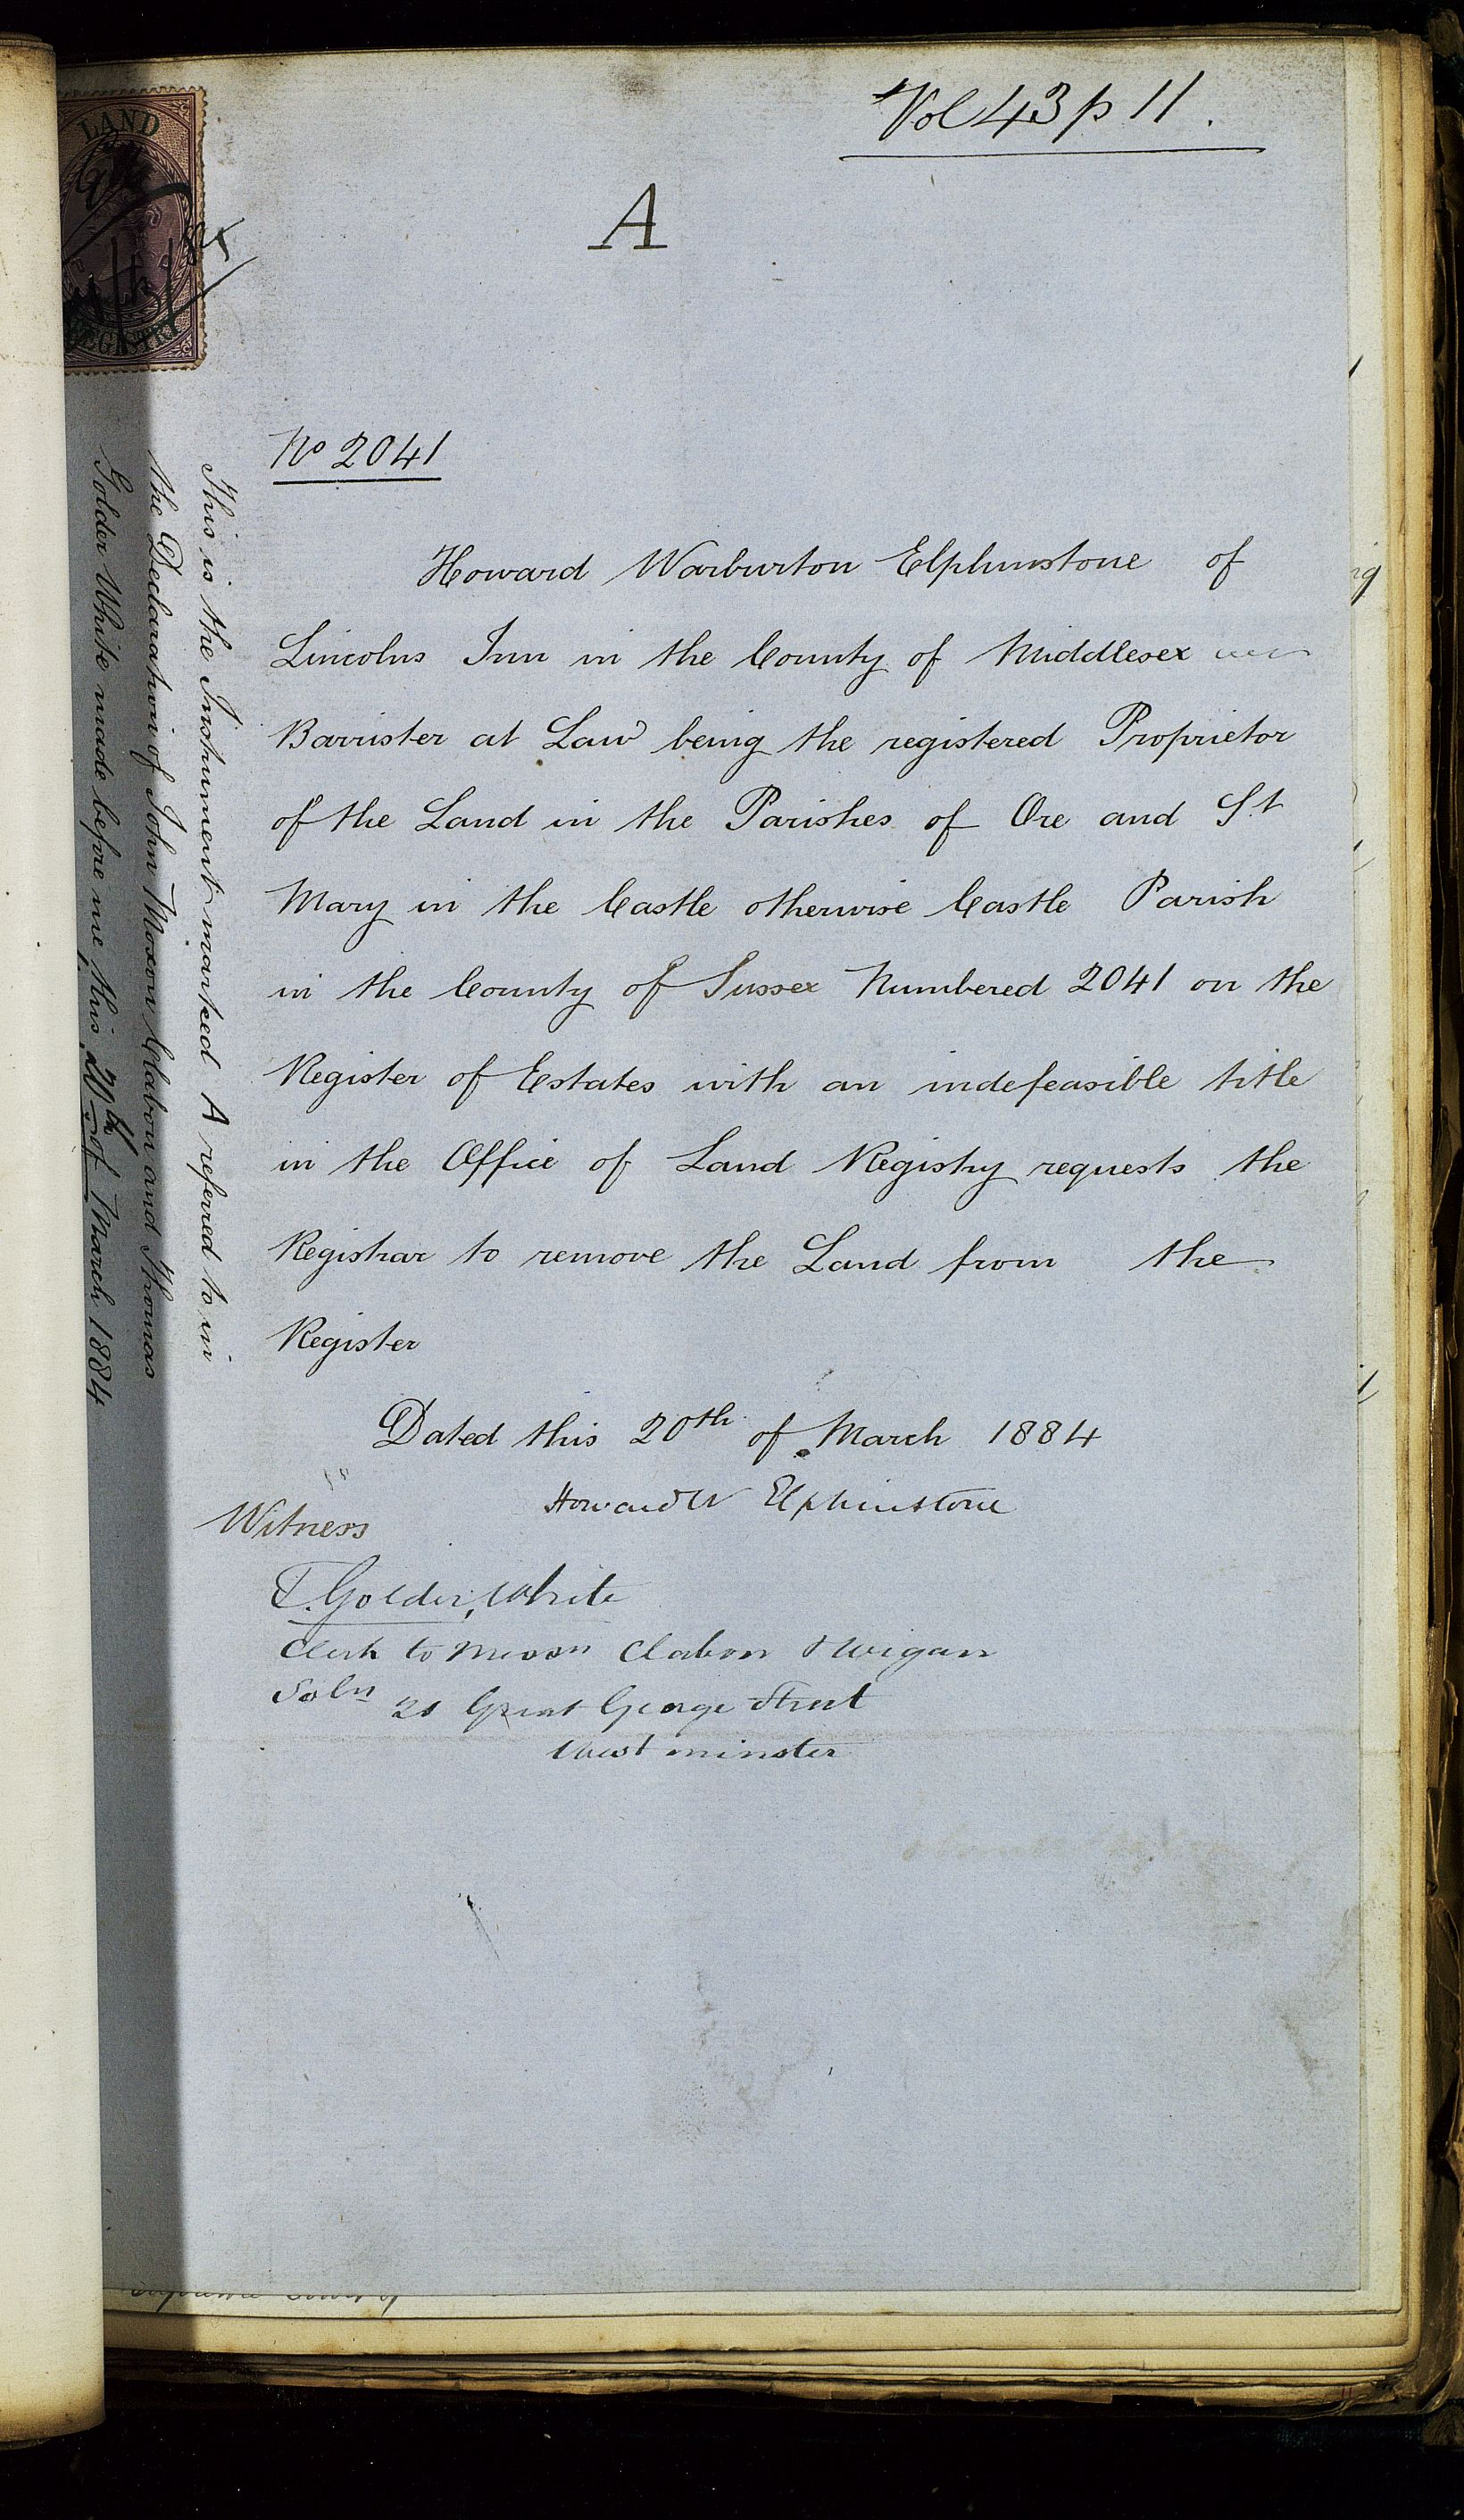 Vol 43 p 11.
A
LAND
REGISTRY
No 2041
Howard Warburton Elphinstone of
Lincolns Inn in the County of Middlesex
Barrister at Law being the registered Proprietor
of the Land in the Parishes of Ore and St
Mary in the Castle otherwise Castle Parish
in the County of Sussex Numbered 2041 on the
Register of Estates with an indefeasible title
in the Office of Land Registry requests the
Registrar to remove the Land from the
Register
Dated this 20th of March 1884
Howard W Elphinstone
Witness
T. Golder White
Clerk to Messrs Clabon & Wigan
Solrs 21 Great George Street
Westminster
This is the Instrument marked A referred to in
the Declaration of John Moxon Clabon and Thomas
Golder White made before me this 20th of March 1884